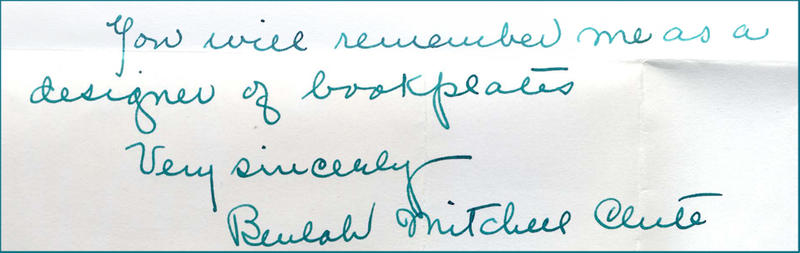 You will remember me as a
designer of bookplates
Very sincerely
Beulah Mitchell Clute